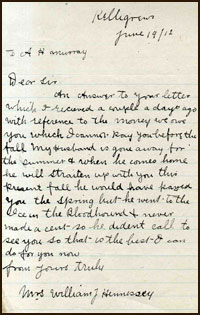 Kelligrews
June 19/12
To A H Murray
Dear Sir
An Answer to your letter
which I recieved a couple a days ago
with reference to the money we owe
you which I cannot Pay you before the
fall My husband is gone away for
the summer & when he comes home
he will straiten up with you this
present fall he would have payed
you the Spring but he went to the
Ice in the Bloodhound & never
made a cent so he dident call to
see you so that is the best I can
do for you now
from yours truly
Mrs William J Hennessey